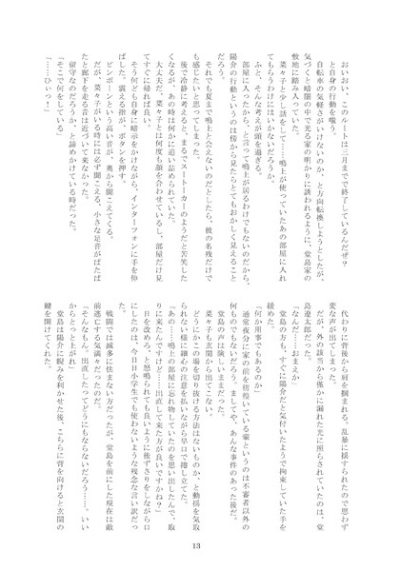 おいおい、このルートは三月までで終了しているんだぜ？
と自身の行動を嗤う。
自転車の気軽さがいけないのか、と方向転換しようとしたが、
気づくと暗闇の中で光る家の明かりに誘われるように、堂島家の
敷地に踏み入っていた。
菜々子と少し話をして……鳴上が使っていたあの部屋に入れ
てもらうわけにはいかないだろうか。
ふと、そんな考えが頭を過ぎる。
部屋に入ったから、と言って鳴上が居るわけでもないのだから、
陽介の行動というのは傍から見たらとてもおかしく見えること
だろう。
それでも夏まで鳴上と会えないのだとしたら、彼の名残だけで
も感じたいと思ってしまった。
後で冷静に考えると、まるでストーカーのようだと苦笑した
くなるが、あの時は何かに追い詰められていた。
大丈夫だ、菜々子とは何度も顔を合わせているし、部屋だけ見
てすぐに帰れば良い。
そう何度も自身に暗示をかけながら、インターフォンに手を伸
ばした。震える指が、ボタンを押す。
ピンポーンという高い音が、奥から聞こえてくる。
だが、菜々子がいる時には必ず聞こえる、小さな足音がぱたぱ
たと廊下を走る音は近づいて来なかった。
留守なのだろうか、と諦めかけている時だった。
「そこで何をしている」
「……ひぃっ！」
代わりに背後から肩を掴まれ、乱暴に揺すられたので思わず
変な声が出てしまった。
だが、外の該当から僅かに漏れた光に照らされていたのは、堂
島遼太郎だった。
「なんだ……おまえか」
堂島の方も、すぐに陽介だと気付いたようで拘束していた手を
緩めた。
「何か用事でもあるのか」
通常夜分に家の前を彷徨いている輩というのは不審者以外の
何ものでもないだろう。ましてや、あんな事件のあった後だ。
堂島の声は険しいままだった。
菜々子も玄関から出てこない。
どうにかこの場を切り抜ける方法はないものか、と動揺を気取
られない様に細心の注意を払いながら早口で捲し立てた。
「あの……鳴上の部屋に忘れ物していたのを思い出したんで、取
りに来たんですけど……出直して来た方が良いですかね？」
日を改めろ、と怒鳴られても良いように後ずさりをしながら口
にしたのは、今日日小学生でも使わないような残念な言い訳だっ
た。
戦闘では滅多に怯まない方だったが、堂島を前にした現在は敵
前逃亡する気満々だったのだ。
「そんなもん、出直したってどうにもならないだろう……。いい
からとっとと上がれ」
堂島は陽介に睨みを利かせた後、こちらに背を向けると玄関の
鍵を開けてくれた。
13